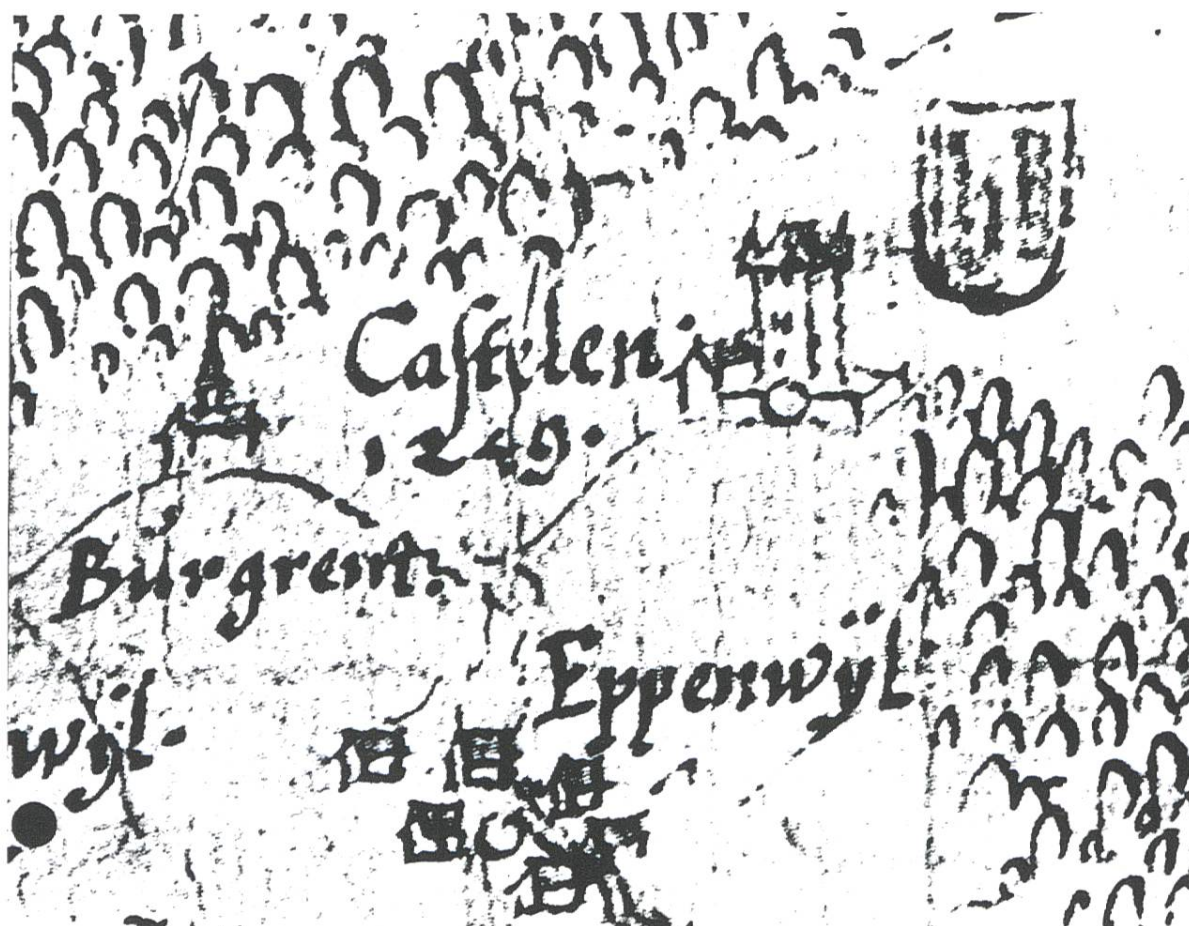 Castelen
·249·
Burgrenſt:
Eppenwÿl
wÿl·